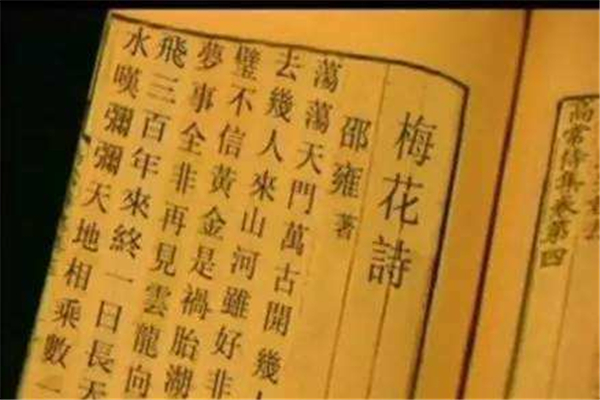 高常侍集卷第四
梅花詩
邵雍 著
蕩蕩天門萬古開幾人
去幾人來山河雖好非
璧不信黃金是禍胎湖
夢事全非再見雲龍向
飛三百年來終一日長天
水嘆彌彌天地相乘數一